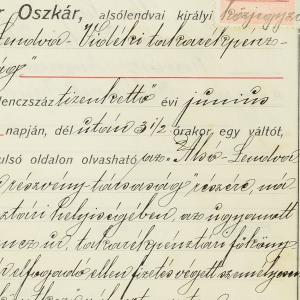 r Oszkár, alsólendvai királyi közjegyz
Lendva-Vidéki takarékpénz-
ság"
lenczszáz tizenkettő évi június
napján, dél után 3 1/2 órakor, egy váltót,
ulsó oldalon olvasható az "Alsó-Lendva
részvény társaság" részére, má
ztári helyiségében, az ugyanott
incz úr, takarékpénztári főköny
elfogadó ellen fizetés végett személyesen